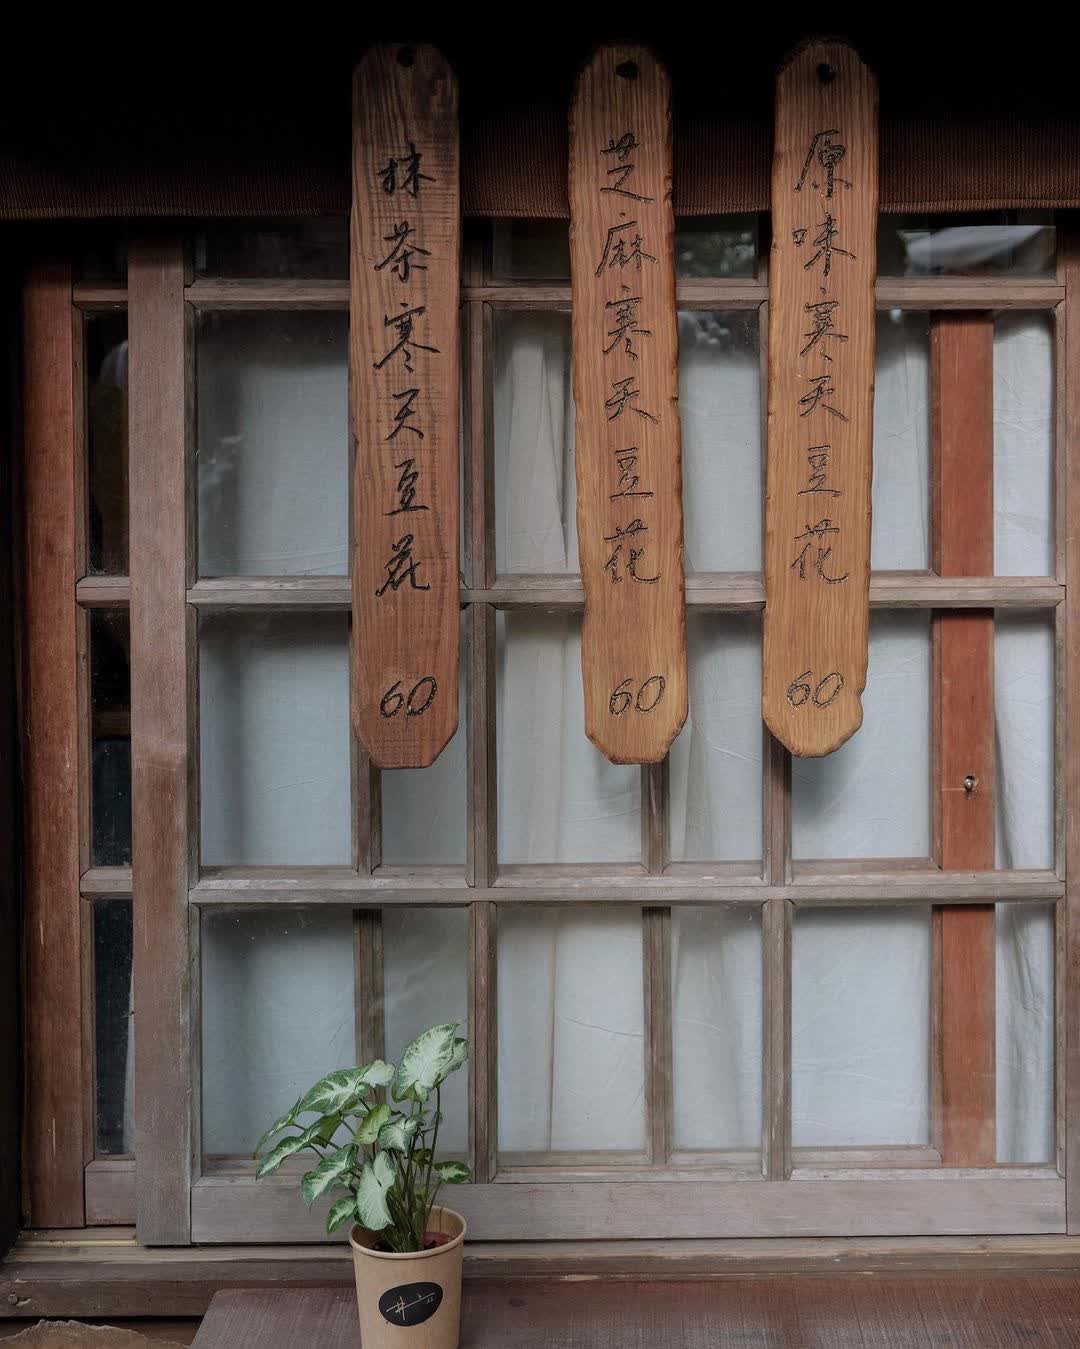 原味寒天豆花
60
芝麻寒天豆花
60
抹茶寒天豆花
60